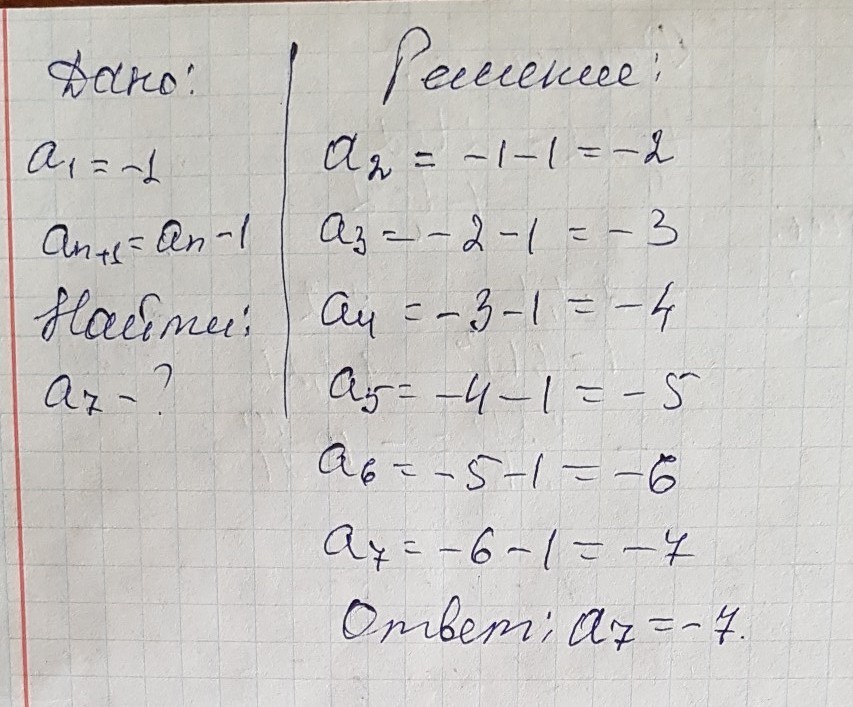 Дано:
a₁ = -1
aₙ₊₁ = aₙ - 1
Найти:
a₇ - ?
Решение:
a₂ = -1-1 = -2
a₃ = -2-1 = -3
a₄ = -3-1 = -4
a₅ = -4-1 = -5
a₆ = -5-1 = -6
a₇ = -6-1 = -7
Ответ: a₇ = -7.